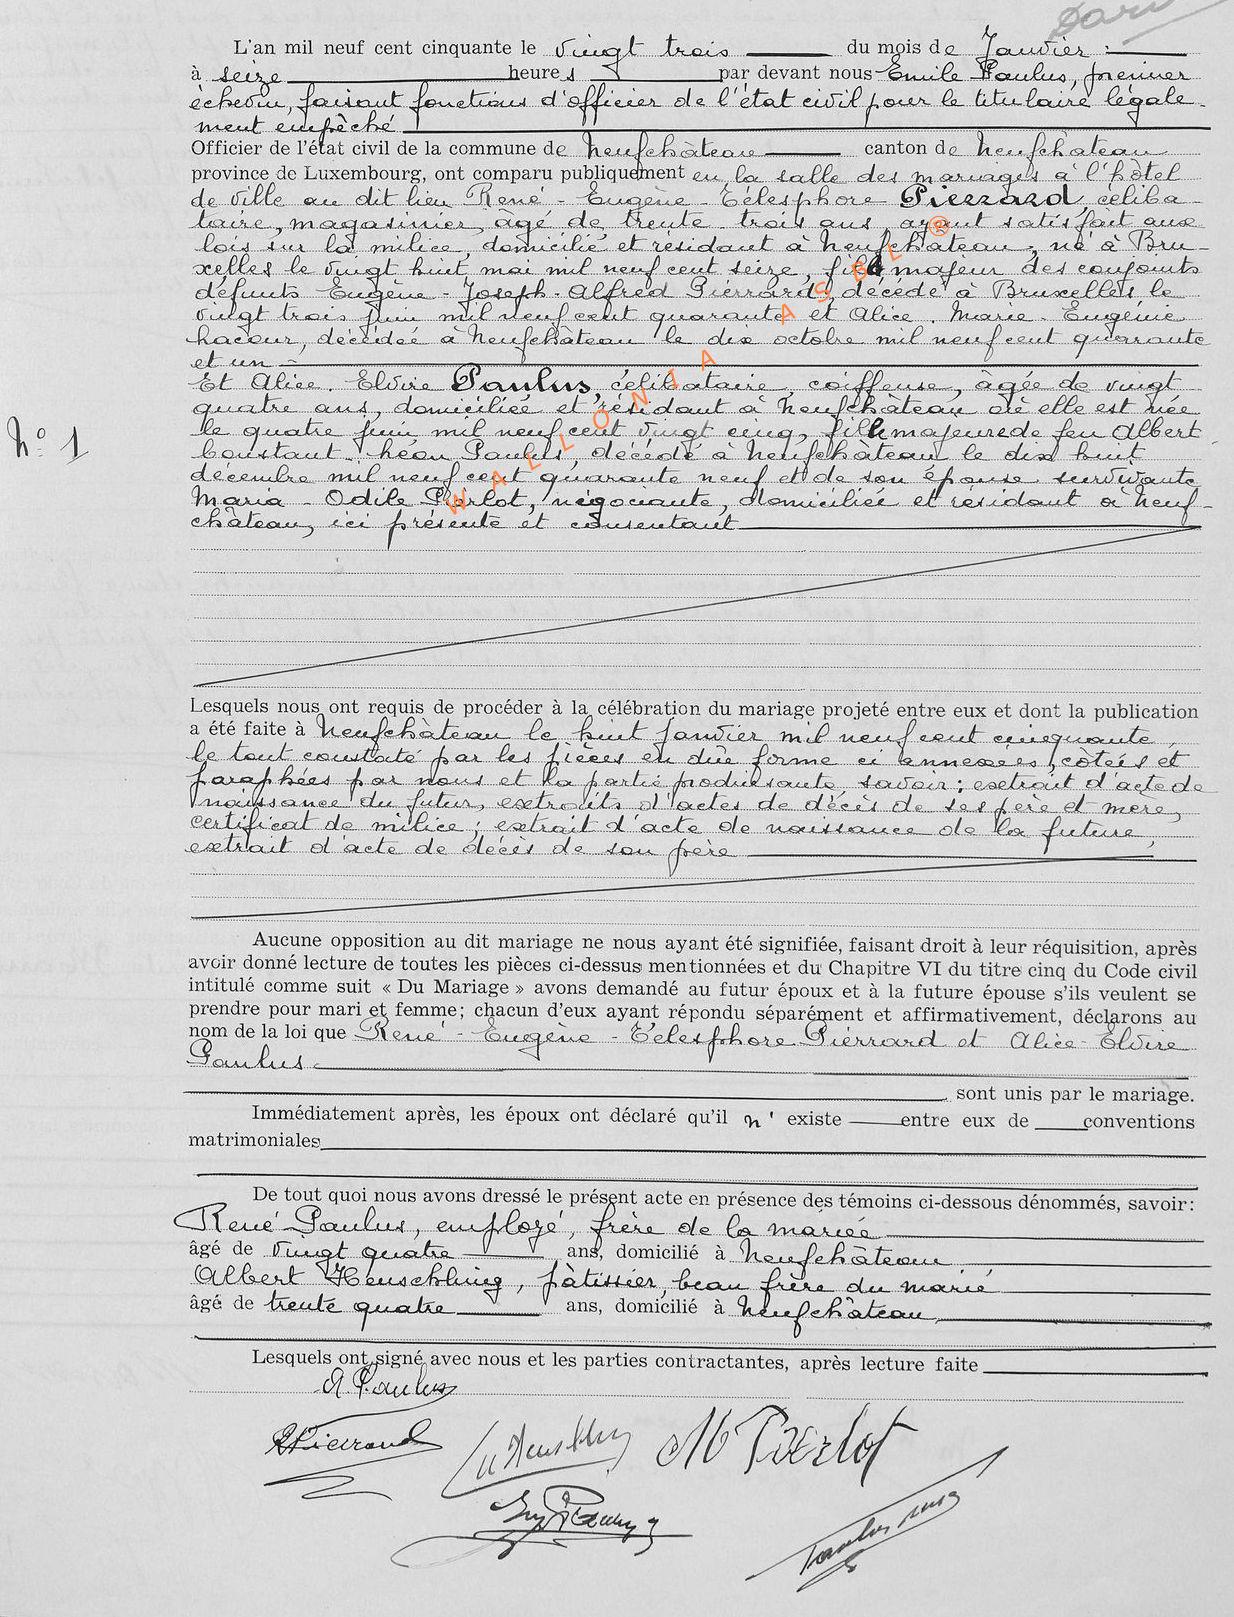 L'an mil neuf cent cinquante le vingt trois du mois de Janvier :
à seize heures par devant nous Emile Paulus, premier
échevin, faisant fonctions d'officier de l'état civil pour le titulaire légale-
ment empêché
Officier de l'état civil de la commune de Neufchâteau canton de Neufchâteau
province de Luxembourg, ont comparu publiquement en la salle des mariages à l'hôtel
de ville au dit lieu René - Eugène - Télesphore Pierrard, céliba-
taire, magasinier, âgé de trente trois ans ayant satisfait aux
lois sur la milice, domicilié et résidant à Neufchâteau, né à Bru-
xelles le vingt huit mai mil neuf cent seize, fils majeur des conjoints
défunts Eugène - Joseph - Alfred Pierrard, décédé à Bruxelles le
vingt trois juin mil neuf cent quarante et Alice - Marie - Eugénie
Lacour, décédée à Neufchâteau le dix octobre mil neuf cent quarante
et un -
Et Alice - Elvire Paulus, célibataire, coiffeuse, âgée de vingt
quatre ans, domiciliée et résidant à Neufchâteau où elle est née
le quatre juin mil neuf cent vingt cinq, fille majeure de feu Albert
Constant - Léon Paulus, décédé à Neufchâteau le dix huit
décembre mil neuf cent quarante neuf et de son épouse survivante
Maria - Odile Pierlot, négociante, domiciliée et résidant à Neuf-
château, ici présente et consentant
N° 1
WALLONIA ASBL ®
Lesquels nous ont requis de procéder à la célébration du mariage projeté entre eux et dont la publication
a été faite à Neufchâteau le huit janvier mil neuf cent cinquante,
le tout constaté par les pièces en due forme ci annexées, côtées et
paraphées par nous et la partie produisante, savoir : extrait d'acte de
naissance du futur, extraits d'actes de décès de ses père et mère,
certificat de milice ; extrait d'acte de naissance de la future,
extrait d'acte de décès de son père
Aucune opposition au dit mariage ne nous ayant été signifiée, faisant droit à leur réquisition, après
avoir donné lecture de toutes les pièces ci-dessus mentionnées et du Chapitre VI du titre cinq du Code civil
intitulé comme suit « Du Mariage » avons demandé au futur époux et à la future épouse s'ils veulent se
prendre pour mari et femme; chacun d'eux ayant répondu séparément et affirmativement, déclarons au
nom de la loi que René - Eugène - Télesphore Pierrard et Alice - Elvire
Paulus
sont unis par le mariage.
Immédiatement après, les époux ont déclaré qu'il n' existe entre eux de conventions
matrimoniales
De tout quoi nous avons dressé le présent acte en présence des témoins ci-dessous dénommés, savoir:
René Paulus, employé, frère de la mariée
âgé de vingt quatre ans, domicilié à Neufchâteau
Albert Heuschling, pâtissier, beau frère du marié
âgé de trente quatre ans, domicilié à Neufchâteau
Lesquels ont signé avec nous et les parties contractantes, après lecture faite
A. Paulus
R Pierrard
M Pierlot